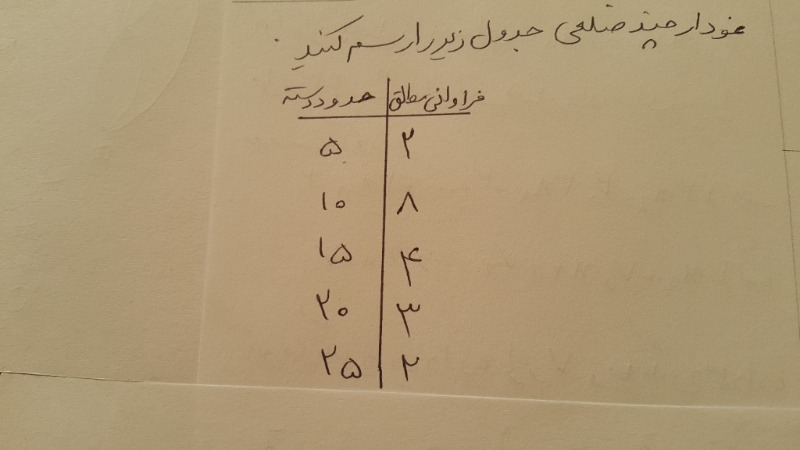 نمودار چند ضلعی جدول زیر را رسم کنید.
فراوانی مطلق حدود دسته
۲ ۵
۸ ۱۰
۴ ۱۵
۳ ۲۰
۲ ۲۵